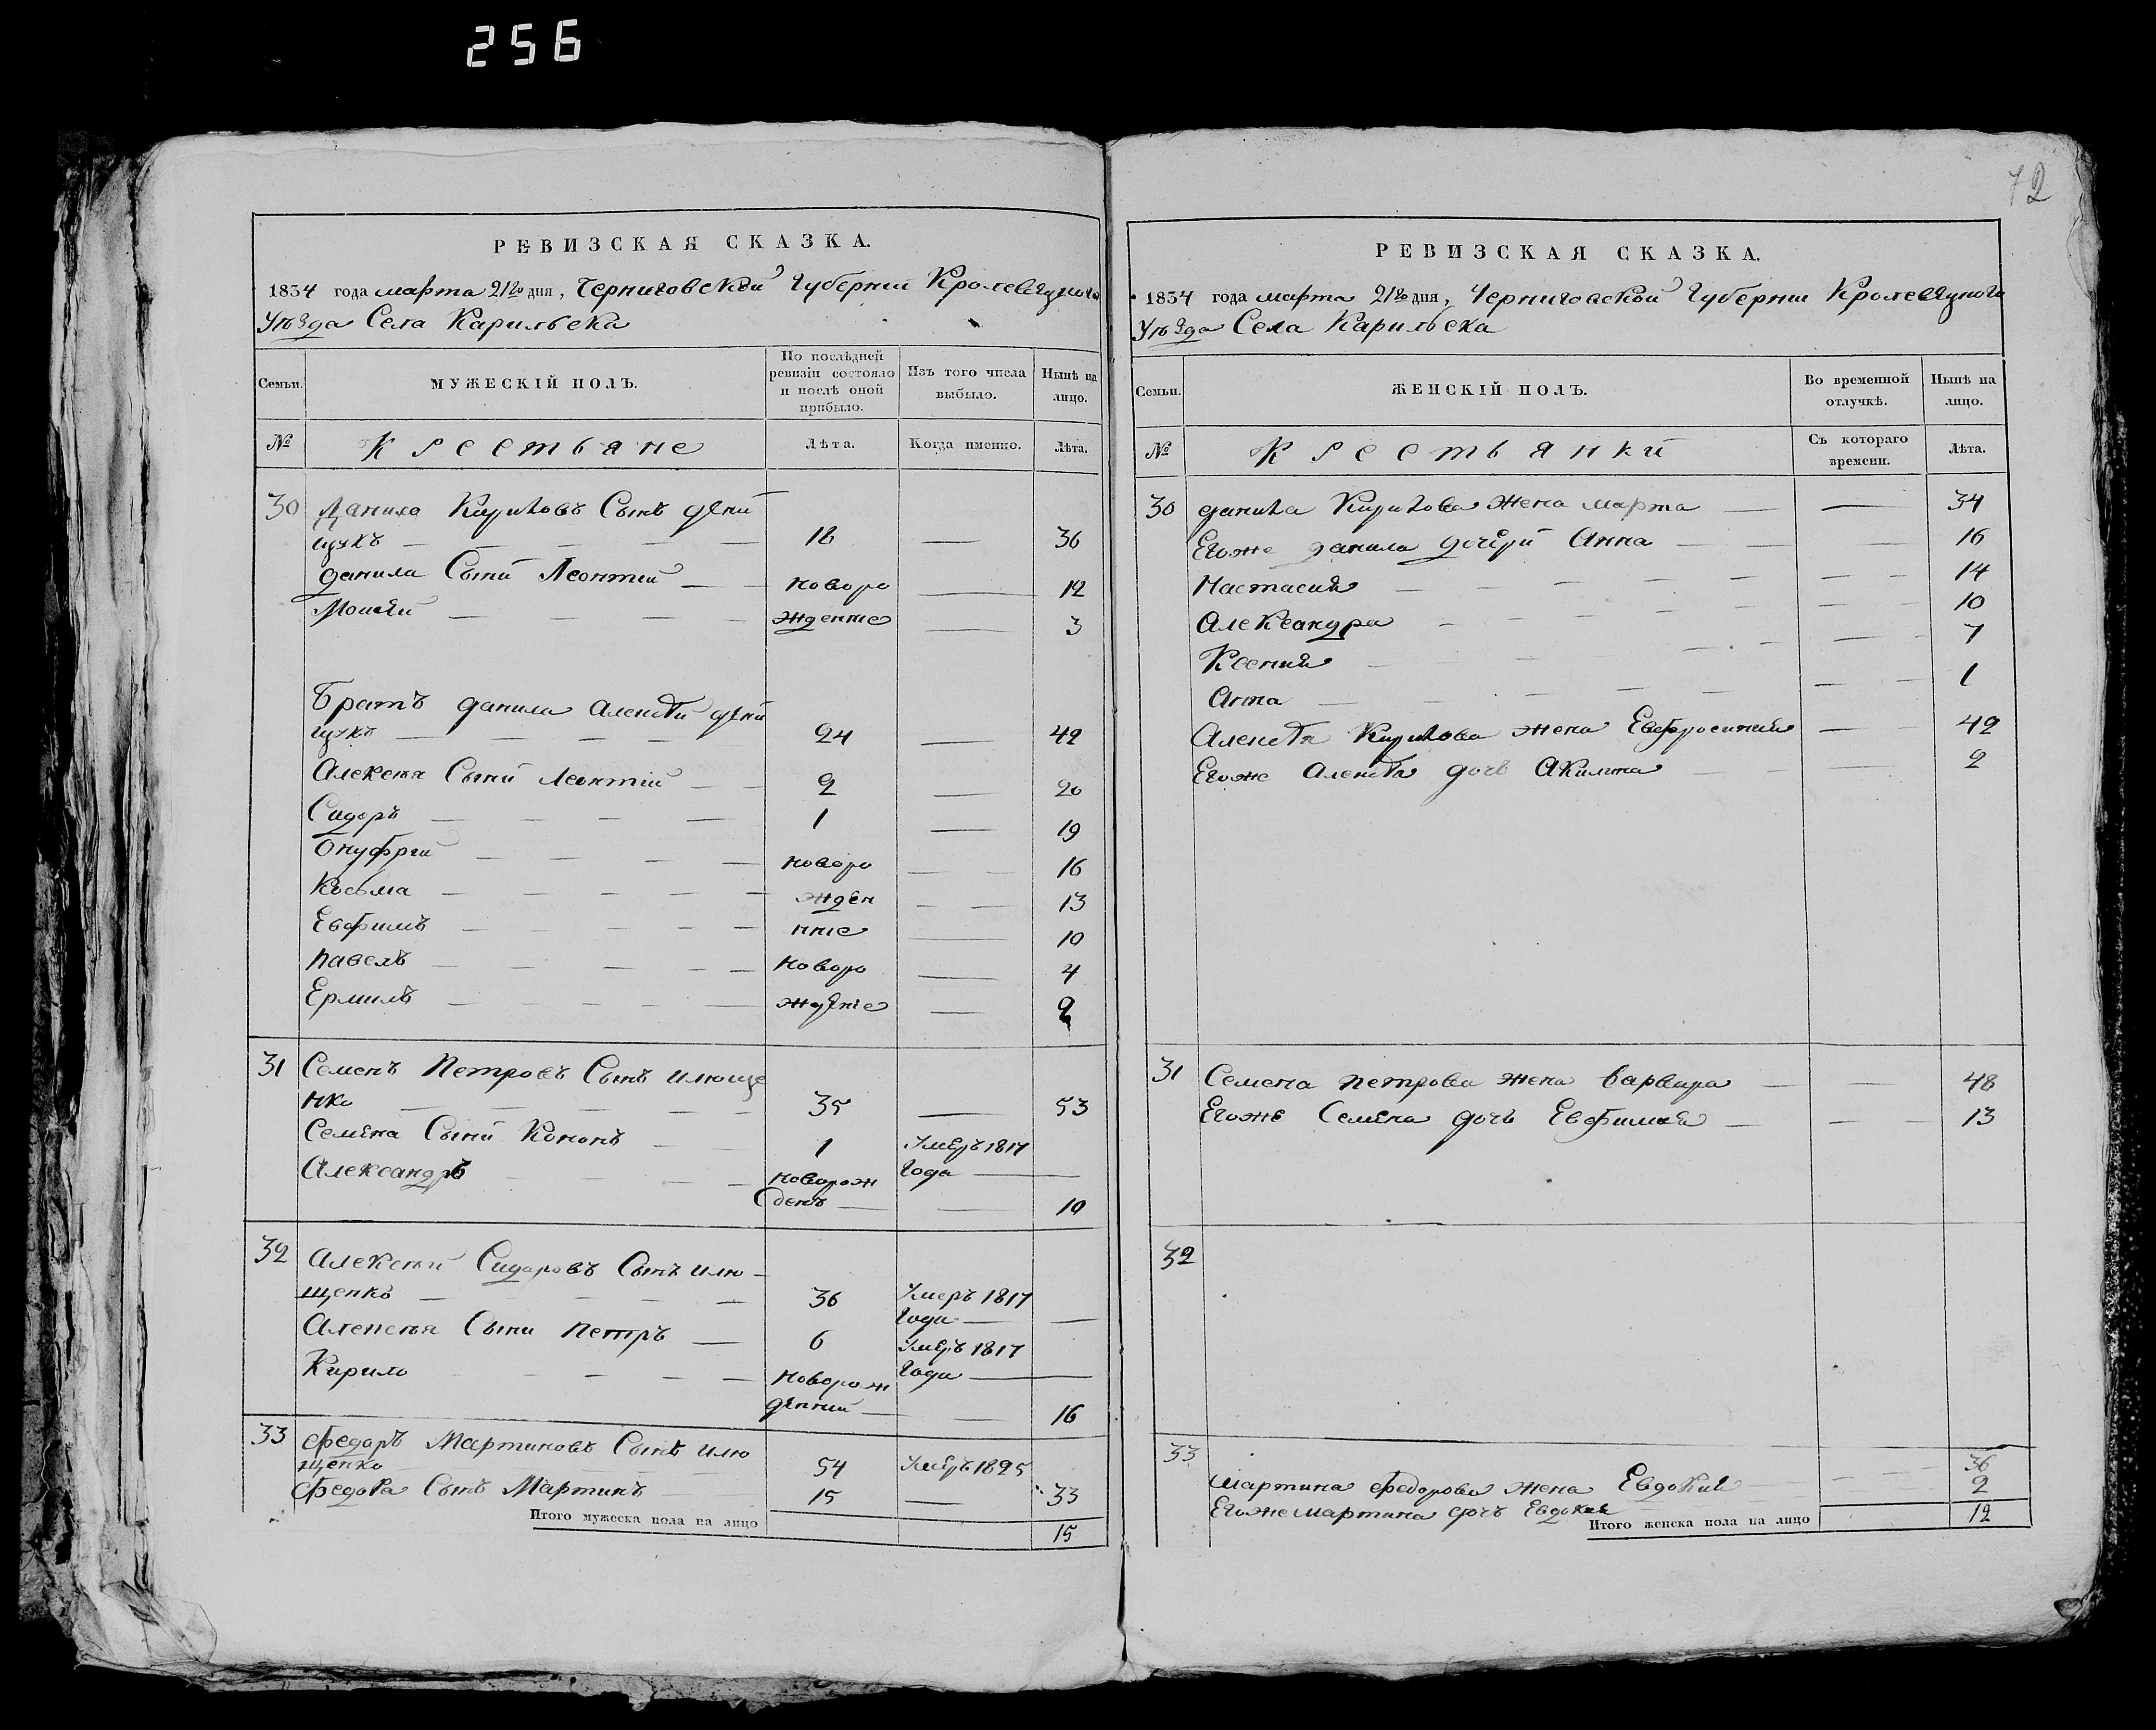 256
72
РЕВИЗСКАЯ СКАЗКА.
1834 года марта 21го дня, Черниговской Губернии Кролевецкого
Уѣзда Села Карильска
Семьи.
МУЖЕСКІЙ ПОЛЪ.
По послѣдней ревизіи состояло и послѣ оной прибыло.
Изъ того числа выбыло.
Нынѣ на лицо.
№ Крестьяне Лѣта. Когда именно. Лѣта.
30 Данила Кириловъ Сынъ
щукъ — 18 — 36
Данила Сыни Леонтий — новоро — 12
Моисей — ждение — 3
Братъ данила Алексѣй
щукъ — 24 — 42
Алексея Сыни Леонтій — 2 — 20
Сидоръ — 1 — 19
Онуфрий — новоро — 16
Косьма — жден — 13
Евфимъ — ние — 10
Павелъ — Новоро — 4
Ермилъ — ждение — 2
31 Семенъ Петровъ Сынъ илюще
нко — 35 — 53
Семена Сыни Кононъ — 1 Умеръ 1817
Александръ — новорож Года —
денъ — 10
32 Алексѣй Сидоровъ Сынъ илю-
щенко — 36 Умеръ 1817
Года —
Алексея Сыни Петръ — 6 Умеръ 1817
Кирило — Новорож Года —
денний — 16
33 Федоръ Мартиновъ Сынъ илю
щенко 54 Умеръ 1825
Федора Сынъ Мартинъ — 15 — 33
Итого мужеска пола на лицо 15
РЕВИЗСКАЯ СКАЗКА.
1834 года марта 21го дня, Черниговской Губернии Кролевецкого
Уѣзда Села Карильска
Семьи.
ЖЕНСКІЙ ПОЛЪ.
Во временной отлучкѣ.
Нынѣ на лицо.
№ Крестьянки Съ котораго времени. Лѣта.
30 данила Кирилова Жена марта — 34
Егоже данила дочери Анна — 16
Настасия — 14
Александра — 10
Ксения — 7
Анна — 1
Алексѣя Кирилова жена Евфросиния — 42
Егоже Алексѣя дочь Акилина — 2
31 Семена петрова жена Варвара — 48
Егоже Семена дочь Евфимия — 13
32
33 36
Мартина Федорова жена Евдокия — 2
Егоже Мартина дочь Евдокия
Итого женска пола на лицо 12